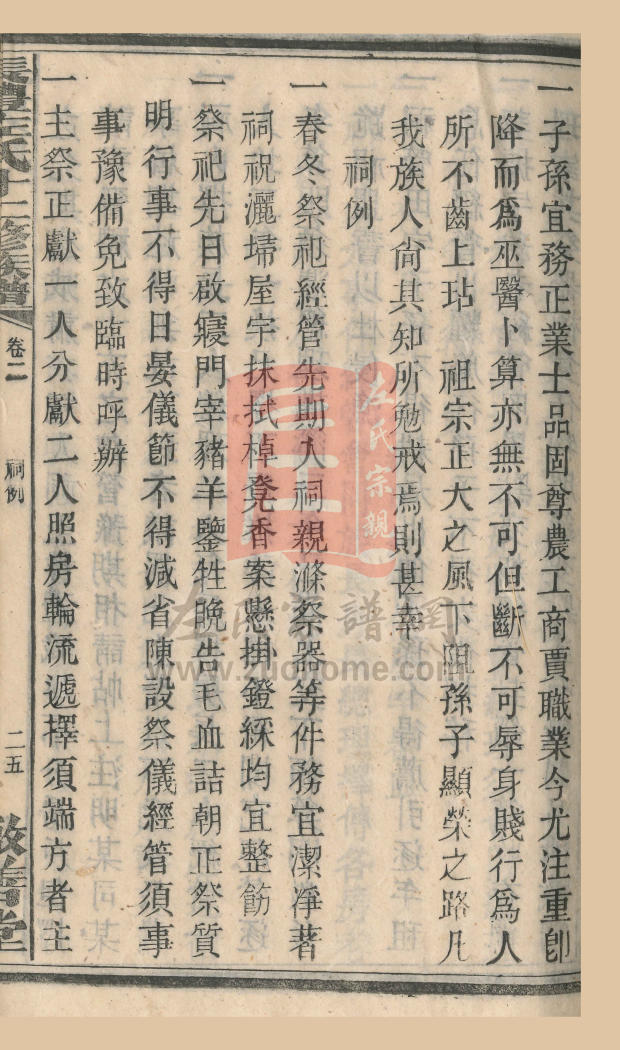 一子孫宜務正業士品固尊農工商賈職業今尤注重卽
降而爲巫醫卜算亦無不可但斷不可辱身賤行爲人
所不齒上玷 祖宗正大之風下阻孫子顯榮之路凡
我族人尙其知所勉戒焉則甚幸
祠例
一春冬祭祀經管先期入祠親滌祭器等件務宜潔淨著
祠祝灑埽屋宇抹拭棹凳香案懸掛鐙綵均宜整飭
一祭祀先日啟寢門宰豬羊鑒牲晚告毛血詰朝正祭質
明行事不得日晏儀節不得減省陳設祭儀經管須事
事豫備免致臨時呼辦
一主祭正獻一人分獻二人照房輪流遞擇須端方者主
長豐左氏十二修族譜 卷二 祠例 二五 敬善堂
左氏宗親
左氏宗譜網
www.zuohome.com